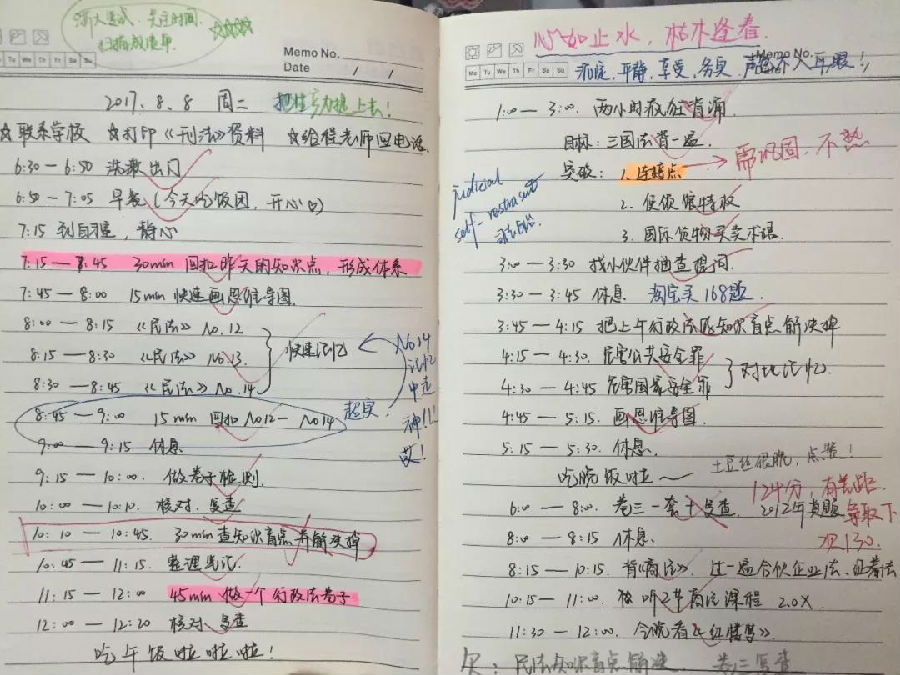 Memo No.
Date / /
2017.8.8 周二 把主动提上去!
☆联系学校 ☆打印《刑法》资料 ☆给程老师回电话
6:30 — 6:50 洗漱出门
6:50 — 7:05 早餐(今天吃饭团,开心
7:15 到自习室,静心
7:15 — 7:45 30min 回扣昨天的知识点,形成体系
7:45 — 8:00 15min 快速画思维导图
8:00 — 8:15 《民法》No.12
8:15 — 8:30 《民法》No.13
快速记忆
8:30 — 8:45 《民法》No.14
No14
记忆
中走
神!!
超实
8:45 — 9:00 15min 回扣No12 — No14
9:00 — 9:15 休息
9:15 — 10:00 做卷子检测
10:00 — 10:10 核对、复查
10:10 — 10:45 30min查知识盲点并解决掉
10:45 — 11:15 整理
11:15 — 12:00 45min 做一个行政法卷子
12:00 — 12:20 核对、复查
吃午饭啦啦啦!
心如止水,枯木逢春
Memo No.
Date
Mo Tu We Th Fr Sa Su
平静,享受,务实
1:00 — 3:00 两小时疯狂背诵
目标:三国法背一遍
突破:1. 连接点
需巩固,不熟
judicial
self-restraint
2. 使领馆特权
3. 国际货物买卖术语
3:00 — 3:30 找小伙伴抽查提问
3:30 — 3:45 休息 淘宝买168题
3:45 — 4:15 把上午行政法的知识盲点解决掉
4:15 — 4:30 危害公共安全罪
4:30 — 4:45 危害国家安全罪
对比记忆
4:45 — 5:15 画思维导图
5:15 — 5:30 休息
吃晚饭啦~ 土豆丝很脆,点赞!
6:00 — 8:00 卷三一套+复查 2012年真题
124分,有差距
争取下
次130.
8:00 — 8:15 休息
8:15 — 10:15 背《商法》,过一遍合伙企业法、
10:15 — 11:00 听2年商法课程 2.0X
11:30 — 12:00 今晚看《红楼梦》
欠:民法知识盲点解决 卷二复查